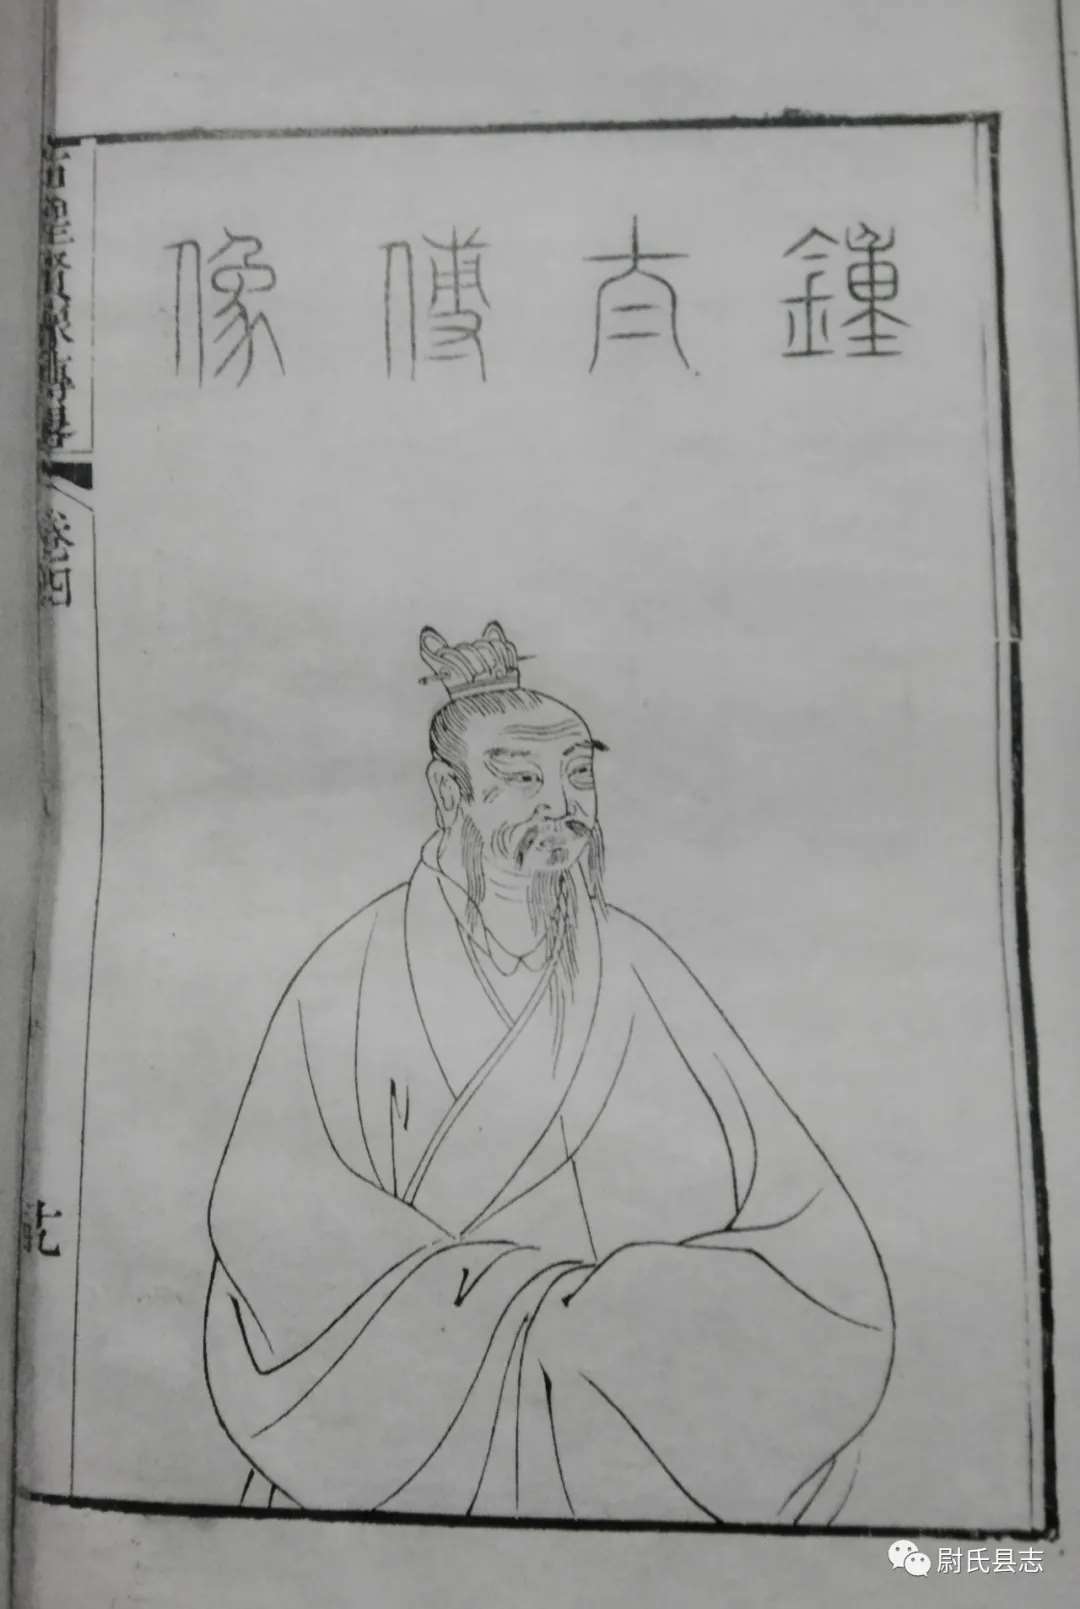 鍾太傅像
古聖賢像傳略
卷四
尉氏县志